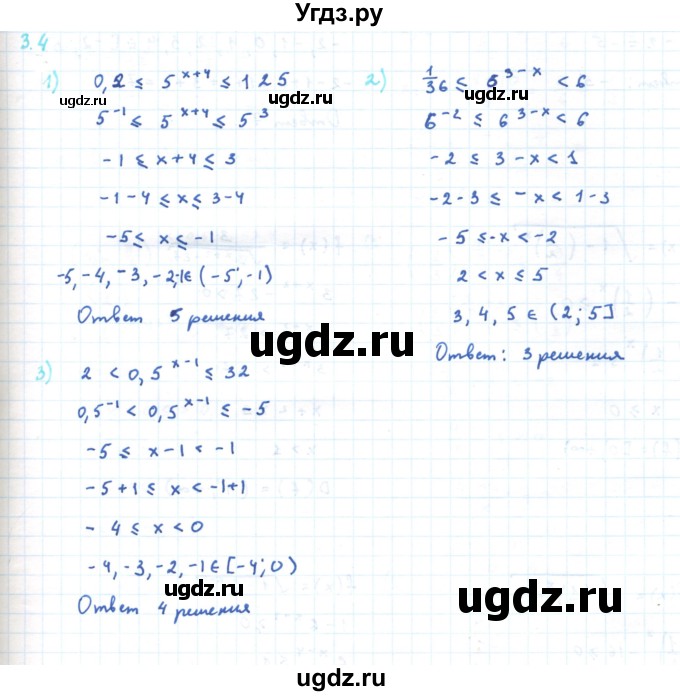 Угдз.ру
3.4
1) 0,2 ≤ 5^(x+4) ≤ 125
5^(-1) ≤ 5^(x+4) ≤ 5^3
-1 ≤ x+4 ≤ 3
-1-4 ≤ x ≤ 3-4
-5 ≤ x ≤ -1
-5, -4, -3, -2,-1 ∈ (-5; -1)
Ответ 5 решения
2) 1/36 ≤ 6^(3-x) < 6
6^(-2) ≤ 6^(3-x) < 6
-2 ≤ 3-x < 1
-2-3 ≤ -x < 1-3
-5 ≤ -x < -2
2 < x ≤ 5
3, 4, 5 ∈ (2; 5]
Ответ: 3 решения
3) 2 < 0,5^(x-1) ≤ 32
0,5^(-1) < 0,5^(x-1) ≤ -5
-5 ≤ x-1 < -1
-5+1 ≤ x < -1+1
-4 ≤ x < 0
-4, -3, -2, -1 ∈ [-4; 0)
Ответ 4 решения
ugdz.ru
ugdz.ru
ugdz.ru
ugdz.ru
ugdz.ru
ugdz.ru
ugdz.ru
ugdz.ru
ugdz.ru